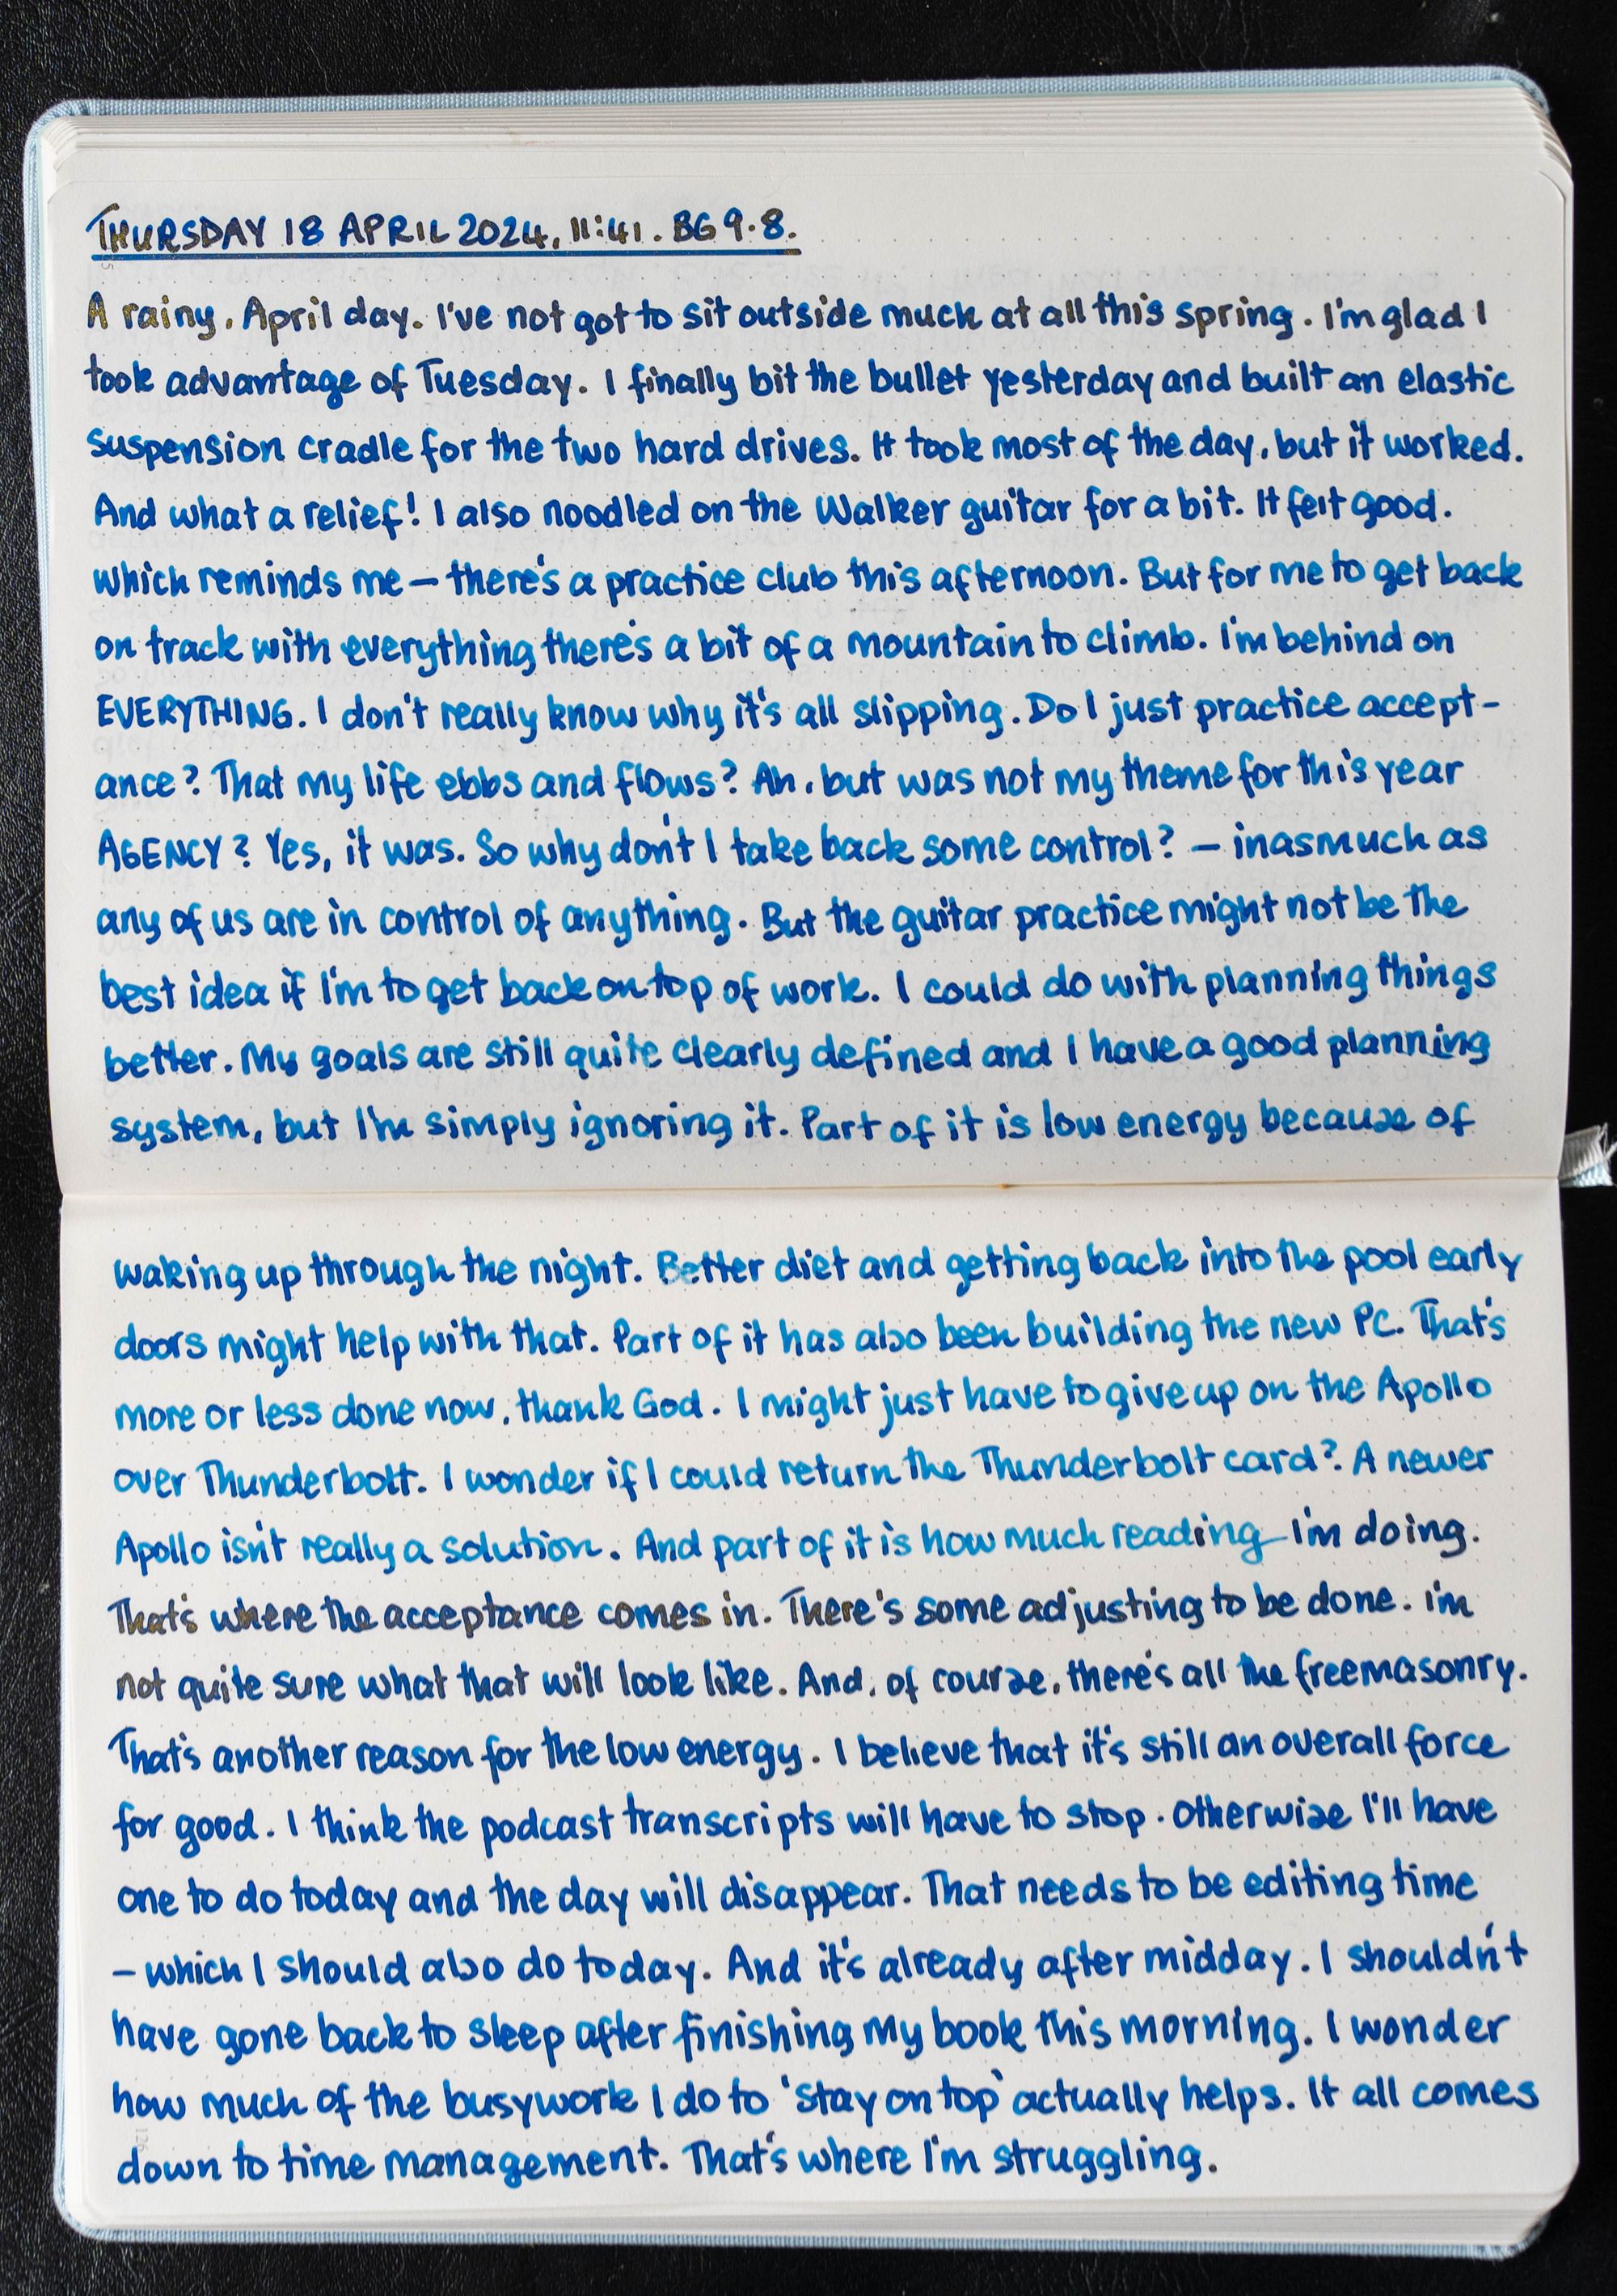 THURSDAY 18 APRIL 2024, 11:41. BG 9.8.
A rainy, April day. I've not got to sit outside much at all this spring. I'm glad I
took advantage of Tuesday. I finally bit the bullet yesterday and built an elastic
suspension cradle for the two hard drives. It took most of the day, but it worked.
And what a relief! I also noodled on the Walker guitar for a bit. It felt good.
Which reminds me – there's a practice club this afternoon. But for me to get back
on track with everything there's a bit of a mountain to climb. I'm behind on
EVERYTHING. I don't really know why it's all slipping. Do I just practice accept-
ance? That my life ebbs and flows? Ah, but was not my theme for this year
AGENCY? Yes, it was. So why don't I take back some control? – inasmuch as
any of us are in control of anything. But the guitar practice might not be the
best idea if I'm to get back on top of work. I could do with planning things
better. My goals are still quite clearly defined and I have a good planning
system, but I'm simply ignoring it. Part of it is low energy because of
waking up through the night. Better diet and getting back into the pool early
doors might help with that. Part of it has also been building the new PC. That's
more or less done now, thank God. I might just have to give up on the Apollo
over Thunderbolt. I wonder if I could return the Thunderbolt card? A newer
Apollo isn't really a solution. And part of it is how much reading I'm doing.
That's where the acceptance comes in. There's some adjusting to be done. I'm
not quite sure what that will look like. And, of course, there's all the freemasonry.
That's another reason for the low energy. I believe that it's still an overall force
for good. I think the podcast transcripts will have to stop. Otherwise I'll have
one to do today and the day will disappear. That needs to be editing time
– which I should also do today. And it's already after midday. I shouldn't
have gone back to sleep after finishing my book this morning. I wonder
how much of the busywork I do to 'stay on top' actually helps. It all comes
down to time management. That's where I'm struggling.